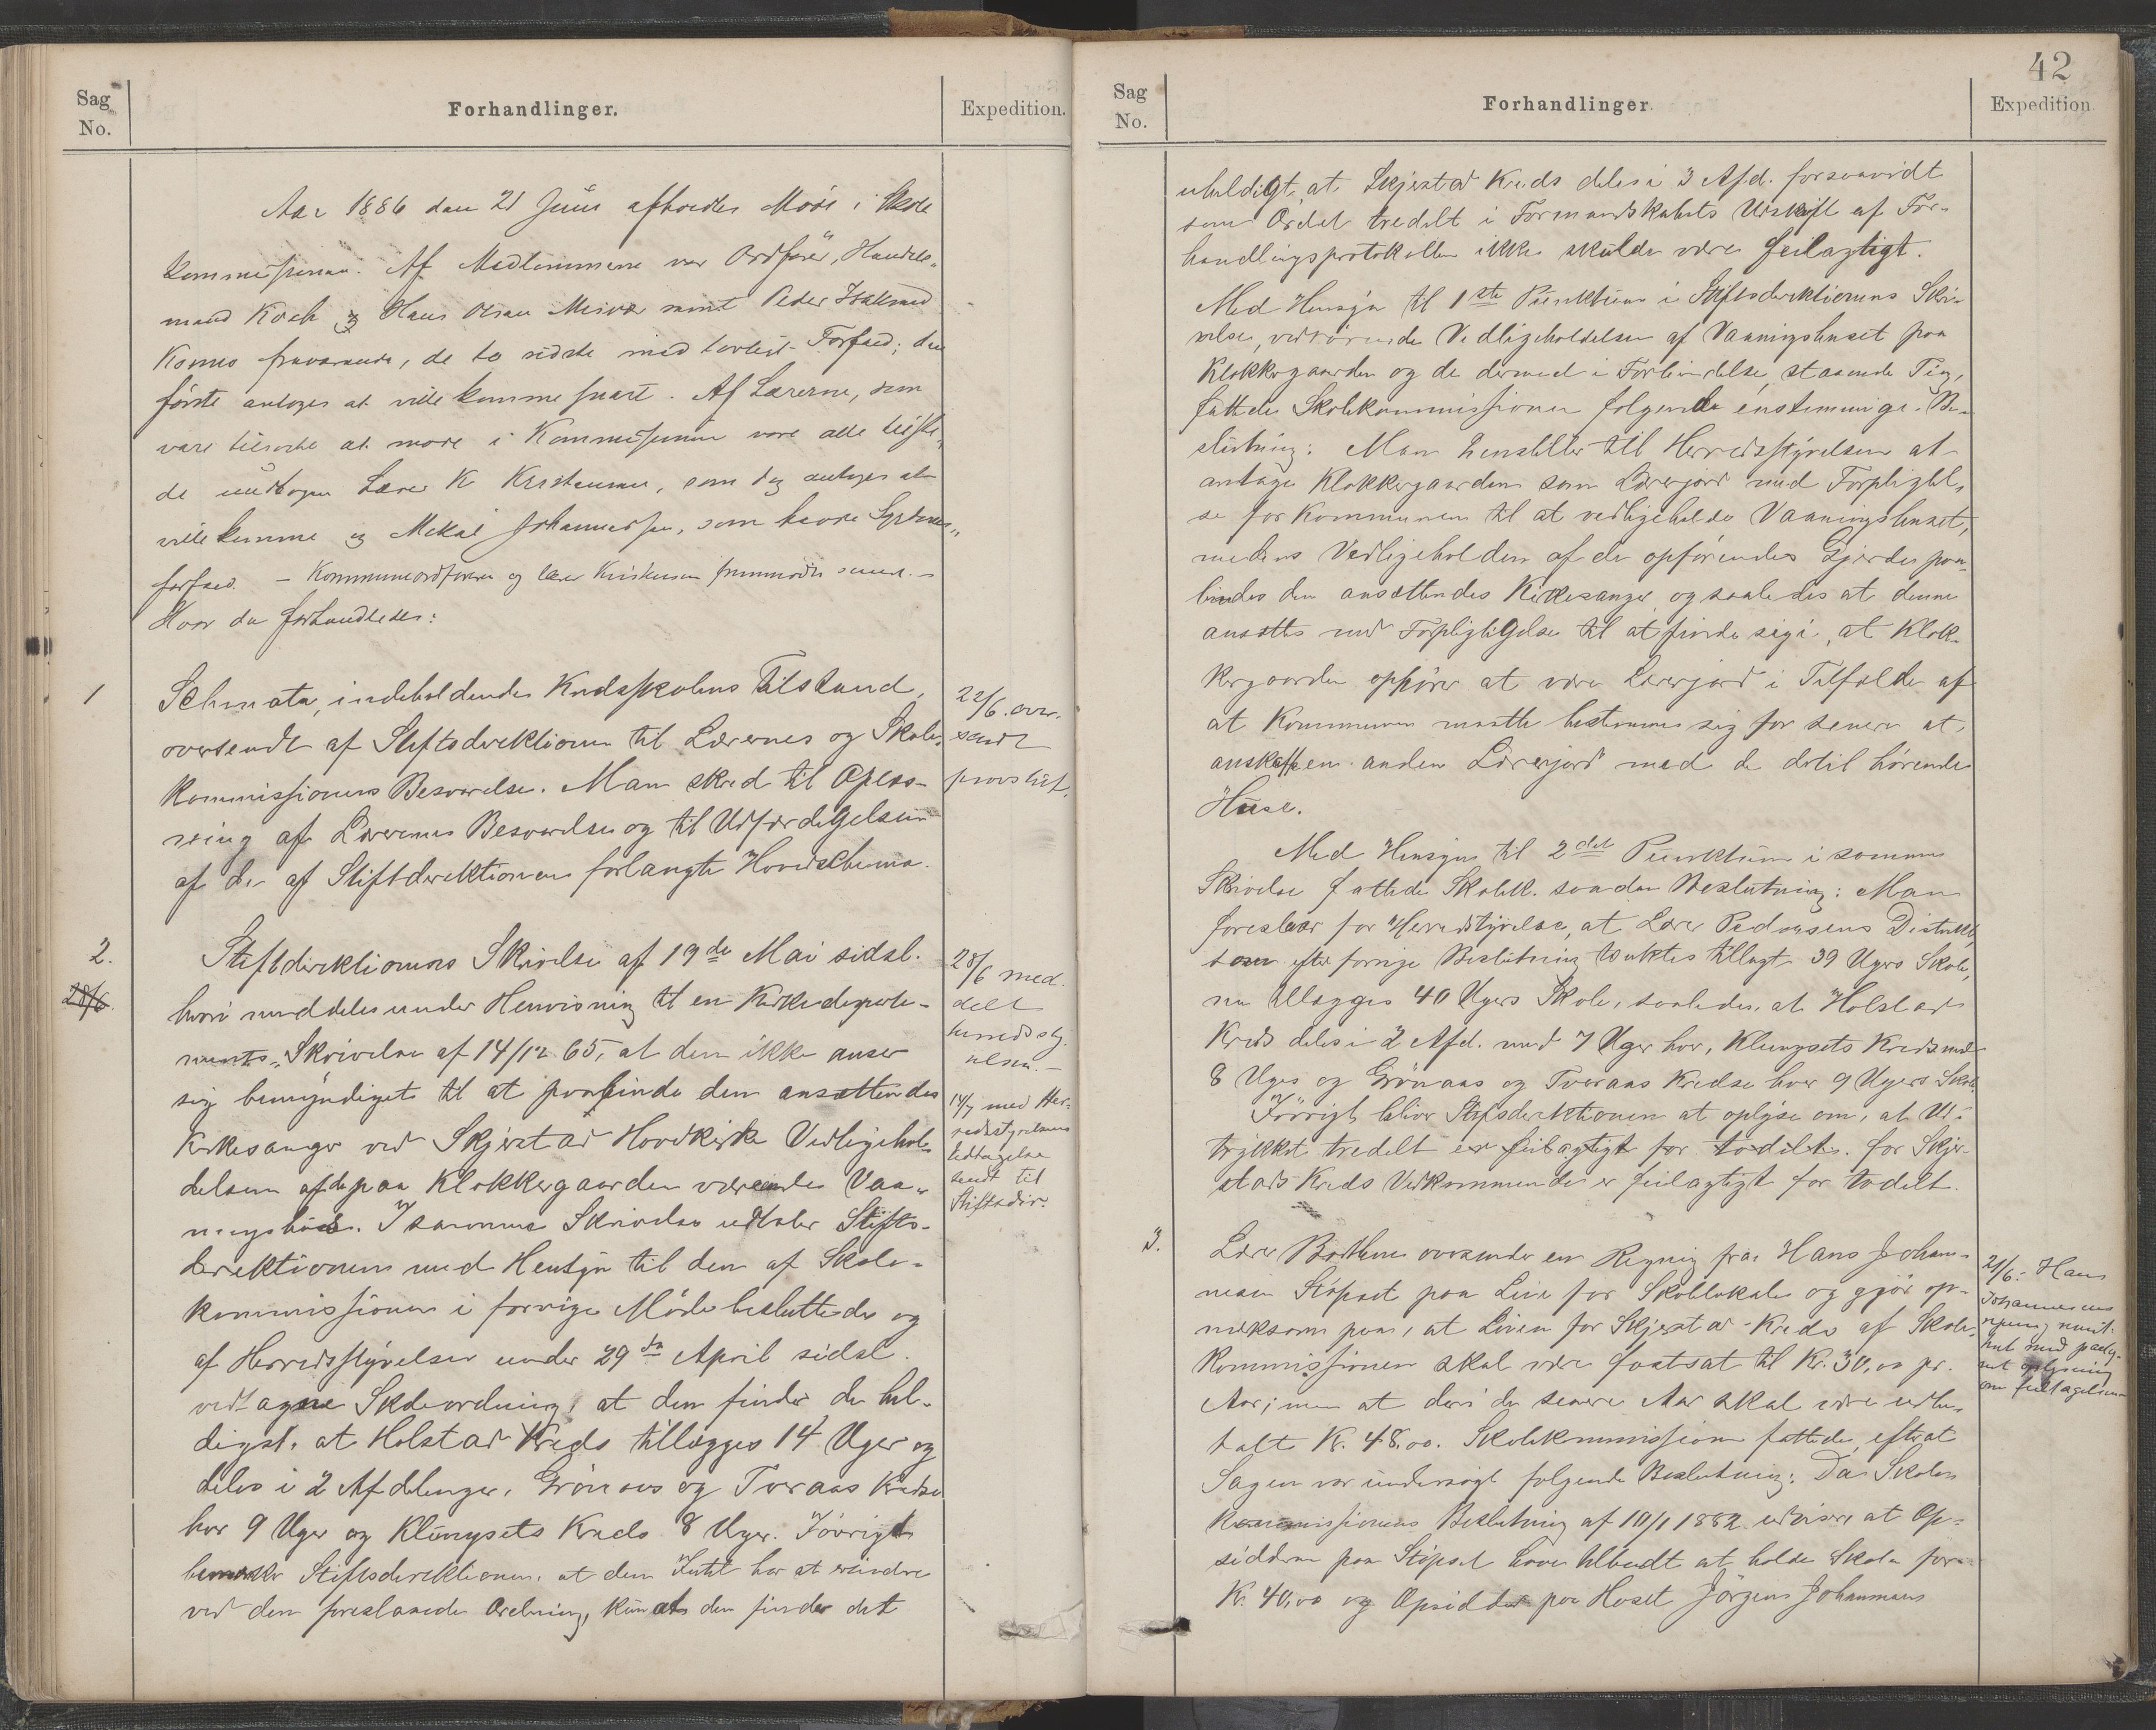 Sag
No.
Forhandlinger.
Expedition.
Aar 1886 den 21 Juni afholdes Møde i Skole
kommissionen. Af Medlemmerne var Ordfører, Handels-
mand Koch og Hans Olsen Misvær samt Peder Isaksen
Kosmo fraværende, de to sidste med lovligt Forfald; den
første antoges at ville komme snart. Af Lærerne, som
vare tilsagte at møde i Kommissionen vare alle tilste-
de undtagen Lærer K Kristensen, som dog antoges at
ville komme og Mikal Johannessen, som havde Sygdoms-
forfald. – Kommuneordføreren og lærer Kristensen fremmødte senere. –
Hvor da forhandledes:
1
Schmata, indeholdende Kredsskolens Tilstand,
oversendt af Stiftsdirektionen til Lærernes og Skole-
kommissionens Besvarelse. Man skred til Oplæs-
ning af Lærernes Besvarelse og til Udfærdigelsen
af de af Stiftdirektionen forlangte Hovedschema.
22/6 over-
sendt
provstiet.
2.
28/6.
Stiftdirektionens Skrivelse af 19de Mai sidstl.
hvori meddeles under Henvisning til en Kirkedeparte-
ments-Skrivelse af 14/12 65, at den ikke anser
sig bemyndiget til at paabinde den ansættendes
Kirkesanger ved Skjerstad Hovdkirke Vedligehol-
delsen af de paa Klokkergaarden værende Vaa-
ningshuse. I samme Skrivelse udtaler Stifts-
direktionen med Hensyn til den af Skole-
kommissionen i forrige Møde besluttede og
af Herredsstyrelsen under 29de April sidstl.
vedtagne Skoleordning, at den finder det hel-
digst, at Holstad Kreds tillægges 14 Uger og
deles i 2 Afdelinger, Grønaas og Tveraas Kredse
hver 9 Uger og Klungsets Kreds 8 Uger. Iøvrigt
bemærker Stiftsdirektionen, at den Intet har at erindre
ved den foreslaaede Ordning, kun at den finder det
28/6 med-
delt
herredssty-
relsen. –
14/7 med Her-
redsstyrelsens
Udtagelse
sendt til
Stiftsdir.
42
Sag
No.
Forhandlinger.
Expedition.
uheldigt, at Skjerstad Kreds deles i 3 Afd. forsaavidt
som Ordet tredelt i Formandskabets Udskrift af For-
handlingsprotokollen ikke skulde være feilagtigt.
Med Hensyn til 1ste Punktum i Stiftsdirektionens Skri-
velse, vedrørende Vedligeholdelsen af Vaaningshuset paa
Klokkergaarden og de dermed i Forbindelse staaende Ting,
fattede Skolekommissionen følgende enstemmige Be-
slutning: Man henstiller til Herredsstyrelsen at
antage Klokkergaarden som Lærerjord med Forpligtel-
se for Kommunen til at vedligeholde Vaaningshuset,
medens Vedligeholden af de opførendes Gjerder paa-
bindes den ansættendes Kirkesanger, og saaledes at denne
ansættes med Forpligtigelse til at finde sig i, at Klok-
kergaarden ophører at være Lærerjord i Tilfælde af
at Kommunen maatte bestemme sig for senere at
anskaffe en anden Lærerjord med de dertil hørende
Huse.
Med Hensyn til 2det Punktum i samme
Skrivelse fattede Skolek. saadan Beslutning: Man
foreslaar for Herredstyrelse, at Lærer Pedersens Distrikt,
som efter forrige Beslutning tænktes tillagt 39 Ugers Skole,
nu tillægges 40 Ugers Skole, saaledes, at Holstads
Kreds deles i 2 Afd. med 7 Uger hver, Klungsets Kreds med
8 Uges og Grønaas og Tveraas Kredse hver 9 Ugers Skole.
Iøvrigt bliver Stiftsdirektionen at oplyse om, at Ud-
trykket tredelt er feilagtigt for todelt. for Skjer-
stads Kreds Vedkommende er feilagtigt for todelt.
3.
Lærer Barthsen oversender en Regning fra Hans Johan-
nesen Støpset paa Leie for Skolelokale og gjør op-
mærksom paa, at Leien for Skjerstad Kreds af Skole-
kommissionen skal være fastsat til Kr. 30,00 pr.
Aar; men at der i de senere Aar skal være udbe-
talt Kr. 48,00. Skolekommissionen fattede, efterat
Sagen var undersøgt følgende Beslutning: Da Skole-
kommissionens Beslutning af 10/1 1882 udviser at Op-
sidderne paa Støpset have tilbudt at holde Skole for
Kr. 40,00 og Opsidder paa Hoset Jørgen Johannsens
21/6. Hans
Johannesens
regning remit-
teret med paateg-
net oplysning
om feiltagelsen